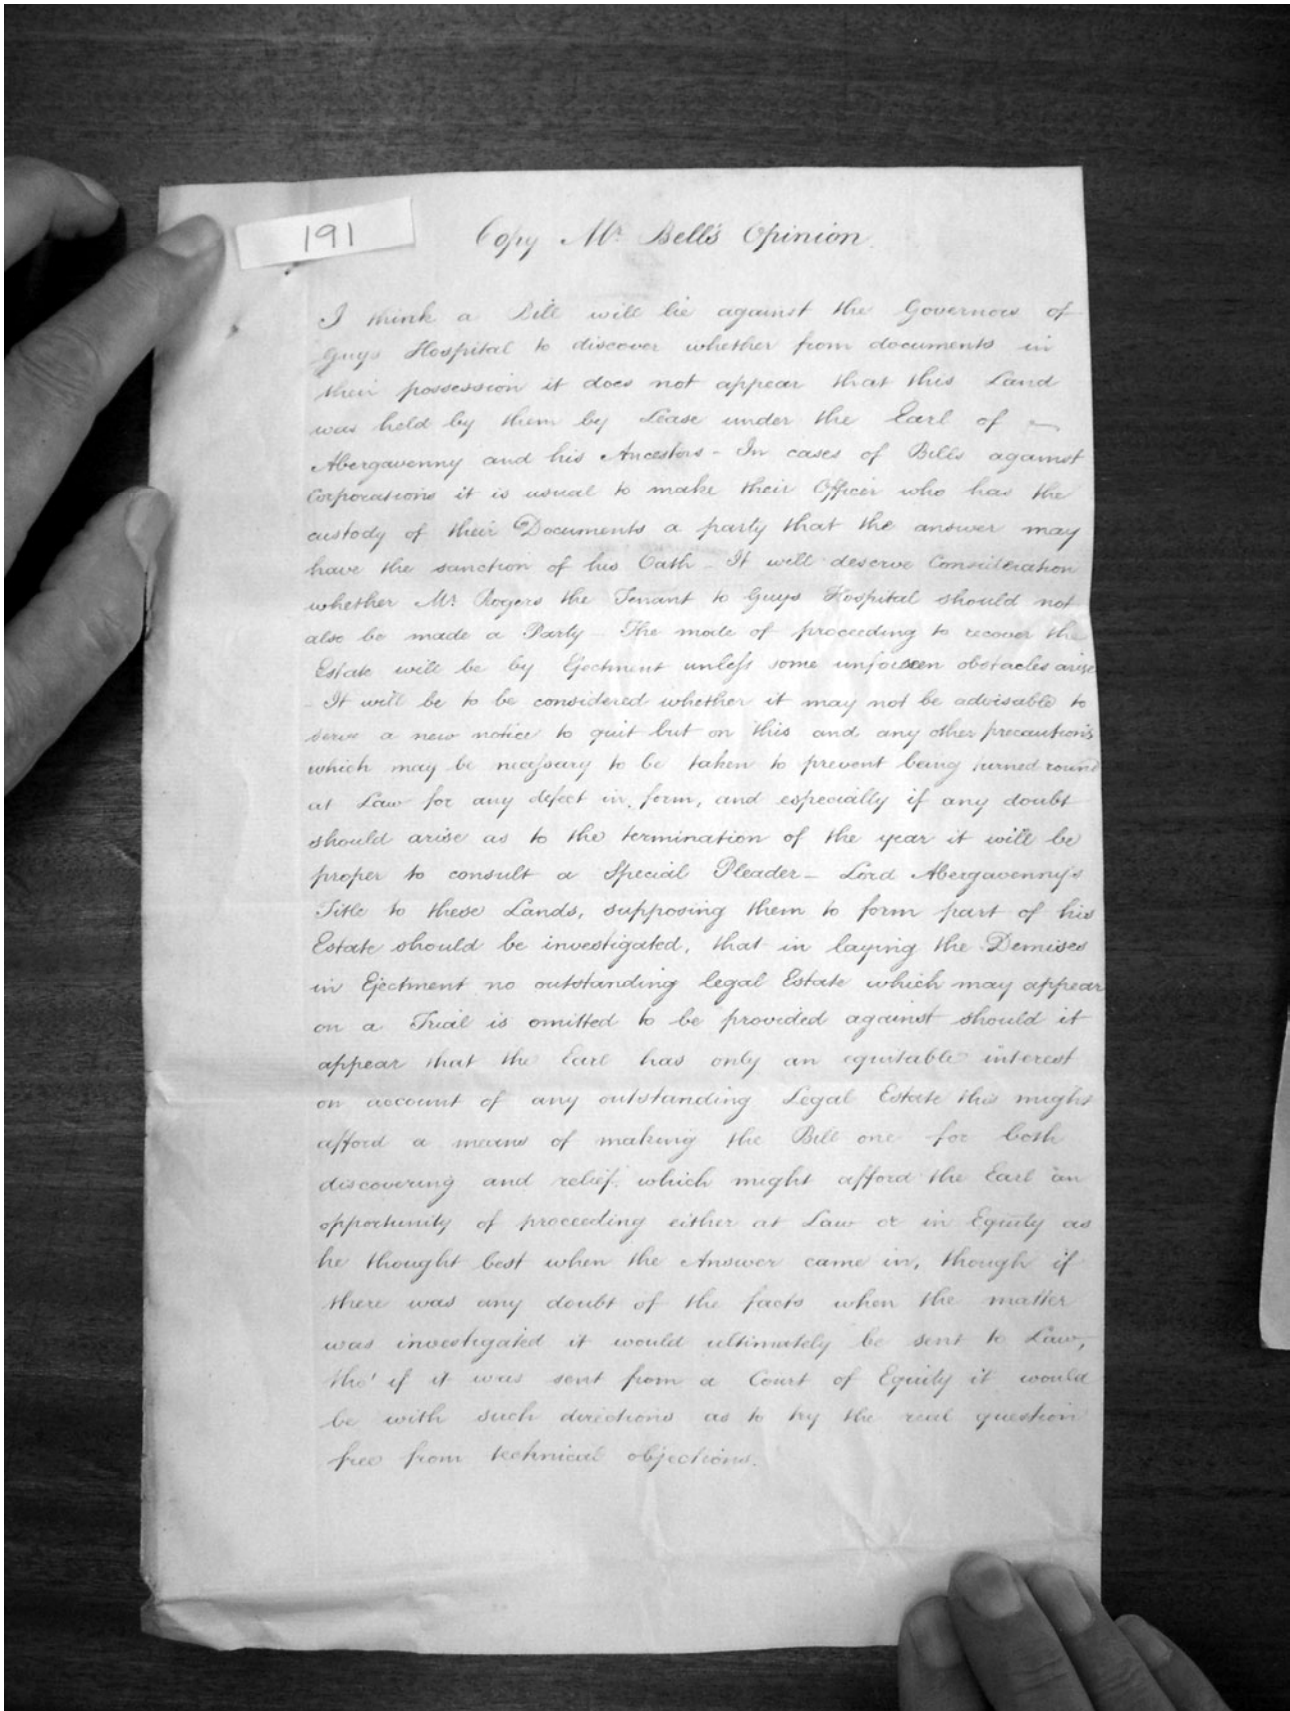 191
Copy Mr. Bell's Opinion.
I think a Bill will lie against the Governors of
Guys Hospital to discover whether from documents in
their possession it does not appear that this Land
was held by them by Lease under the Earl of
Abergavenny and his Ancestors - In cases of Bills against
Corporations it is usual to make their Officer who has the
custody of their Documents a party that the answer may
have the sanction of his Oath - It will deserve Consideration
whether Mr. Rogers the Tenant to Guys Hospital should not
also be made a Party - The mode of proceeding to recover the
Estate will be by Ejectment unless some unforeseen obstacles arise
- It will be to be considered whether it may not be advisable to
serve a new notice to quit but on this and any other precautions
which may be necessary to be taken to prevent being turned round
at Law for any defect in form, and especially if any doubt
should arise as to the termination of the year it will be
proper to consult a Special Pleader - Lord Abergavenny's
Title to these Lands, supposing them to form part of his
Estate should be investigated, that in laying the Demises
in Ejectment no outstanding legal Estate which may appear
on a Trial is omitted to be provided against should it
appear that the Earl has only an equitable interest
on account of any outstanding Legal Estate this might
afford a means of making the Bill one for both
discovering and relief, which might afford the Earl an
opportunity of proceeding either at Law or in Equity as
he thought best when the Answer came in, though if
there was any doubt of the facts when the matter
was investigated it would ultimately be sent to Law,
tho' if it was sent from a Court of Equity it would
be with such directions as to try the real question
free from technical objections.